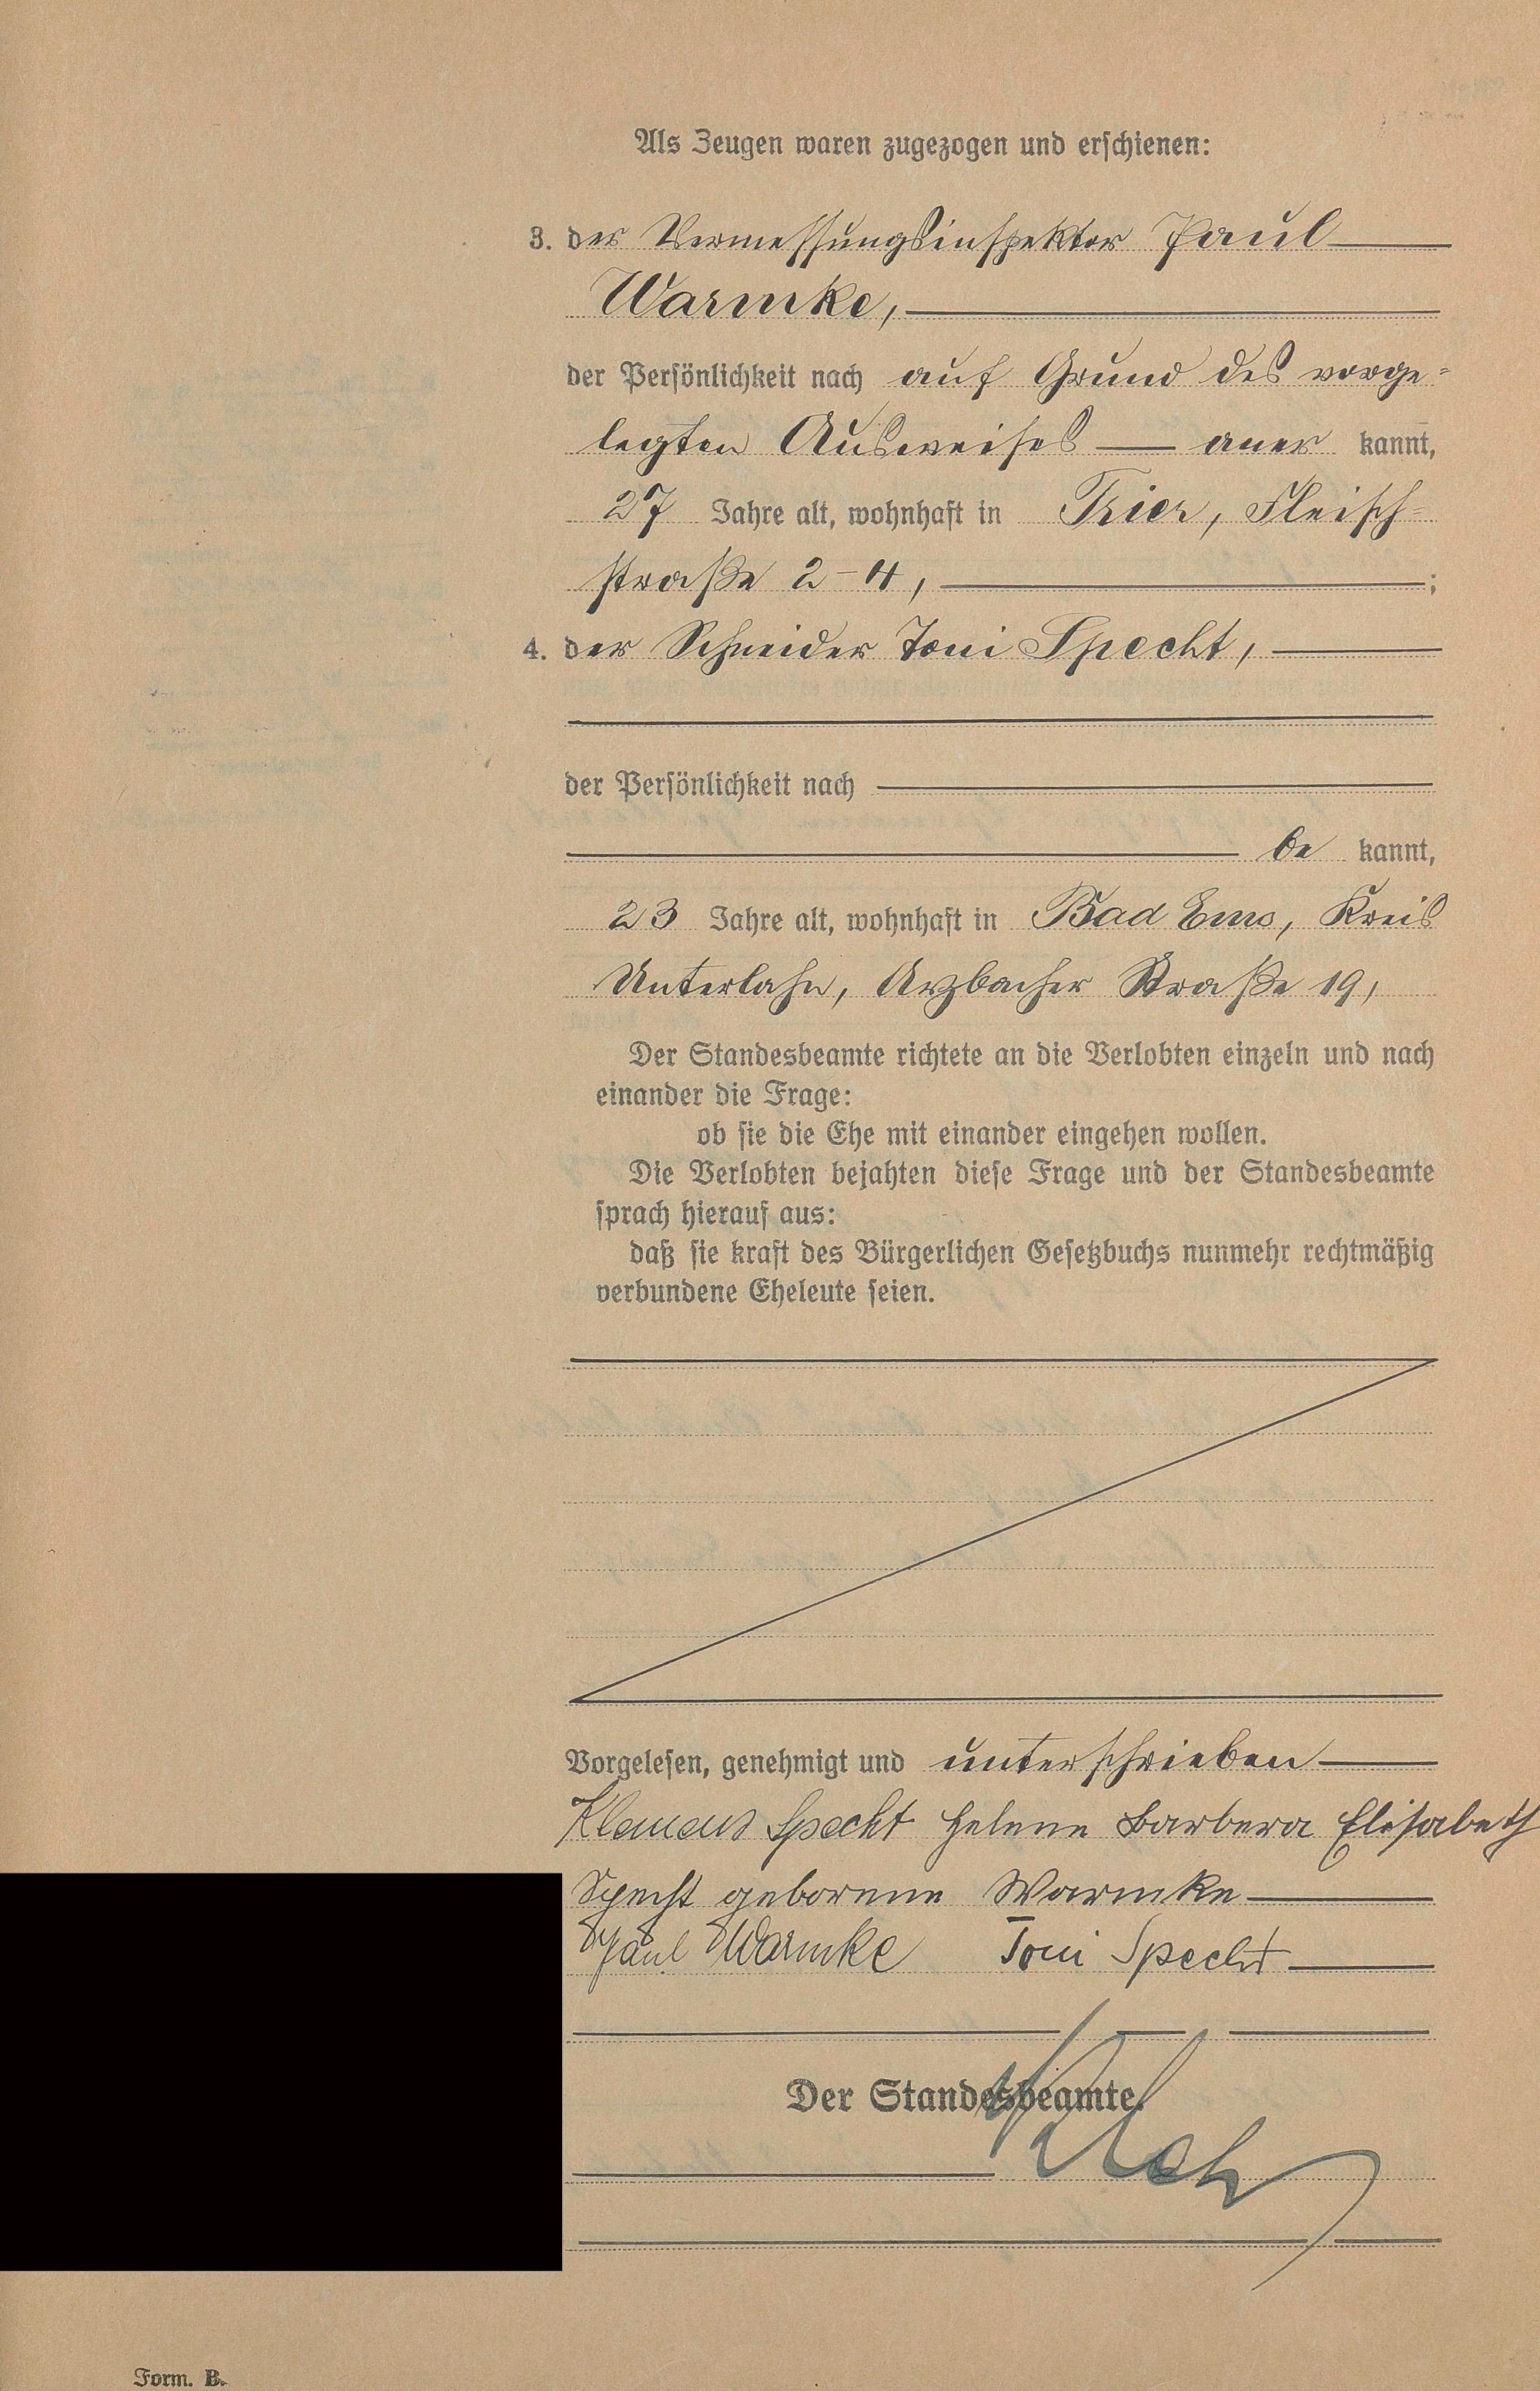 Als Zeugen waren zugezogen und erschienen:
3. der Vermessungsinspektor Paul
Warmke,
der Persönlichkeit nach auf Grund des vorge-
legten Ausweises — aner kannt,
27 Jahre alt, wohnhaft in Trier, Fleisch-
straße 2-4, ;
4. der Schneider Toni Specht,
der Persönlichkeit nach
be kannt,
23 Jahre alt, wohnhaft in Bad Ems, Kreis
Unterlahn, Arzbacher Straße 19,
Der Standesbeamte richtete an die Verlobten einzeln und nach
einander die Frage:
ob sie die Ehe mit einander eingehen wollen.
Die Verlobten bejahten diese Frage und der Standesbeamte
sprach hierauf aus:
daß sie kraft des Bürgerlichen Gesetzbuchs nunmehr rechtmäßig
verbundene Eheleute seien.
Vorgelesen, genehmigt und unterschrieben
Klemens Specht Helene Barbera Elisabeth
Specht geborene Warmke
Paul Warmke Toni Specht
Der Standesbeamte.
Form. B.